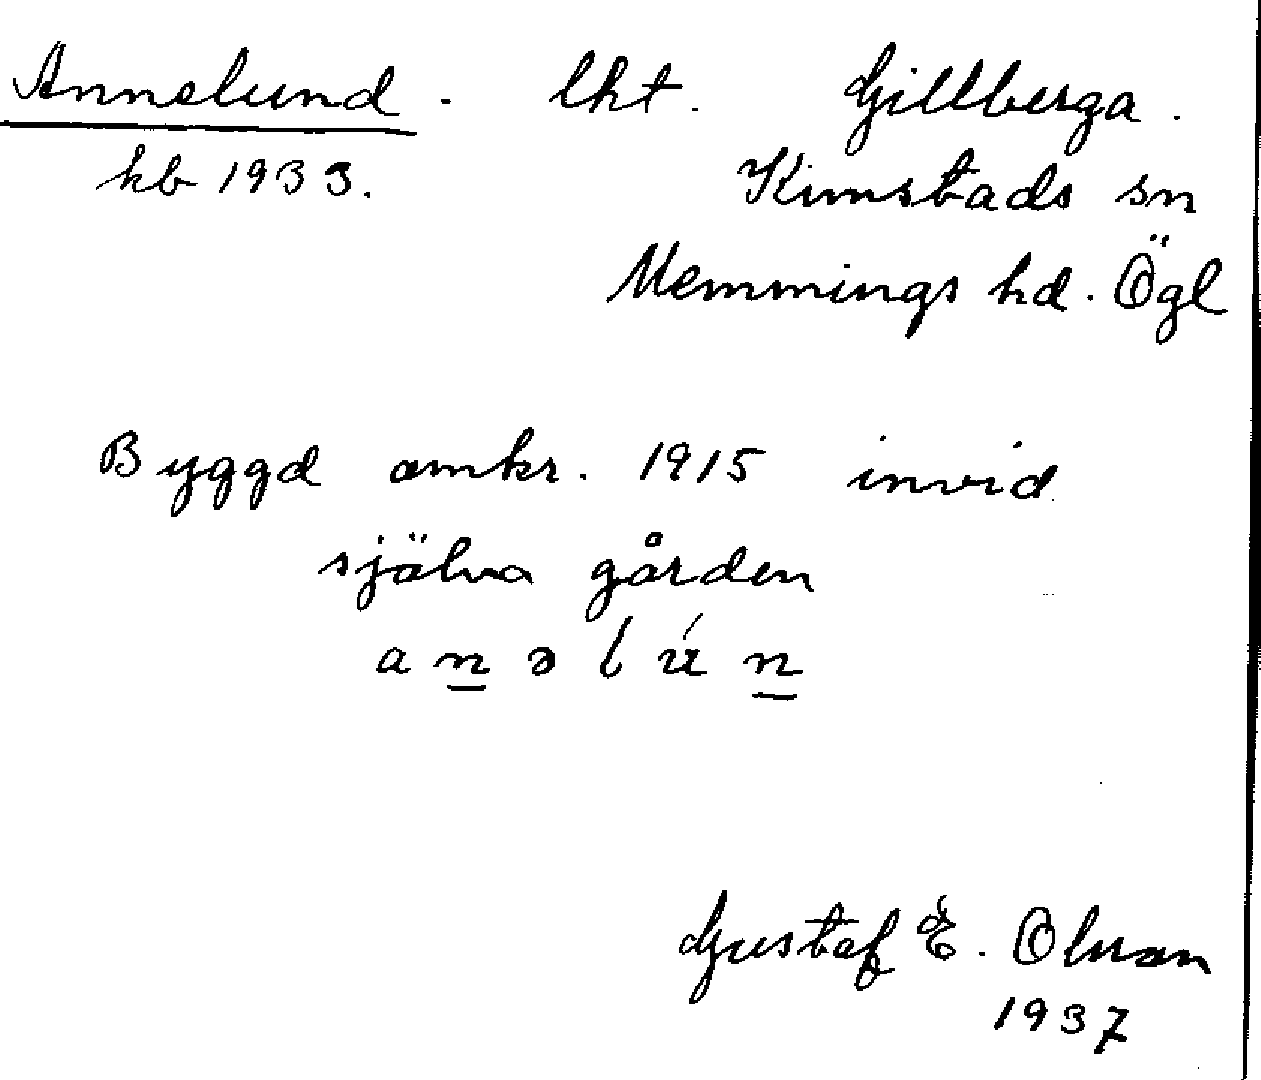 Annelund. lht. Gillberga.
kb 1933. Kimstads sn
Memmings hd. Ögl
Byggd omkr. 1915 invid
själva gården
a n ə l ú n
Gustaf E. Olsson
1937